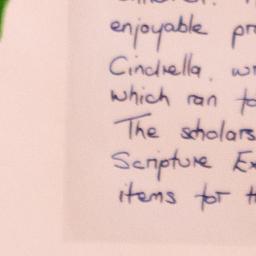 enjoyable
Cindrella,
which ran
The scholars
Scripture
items for